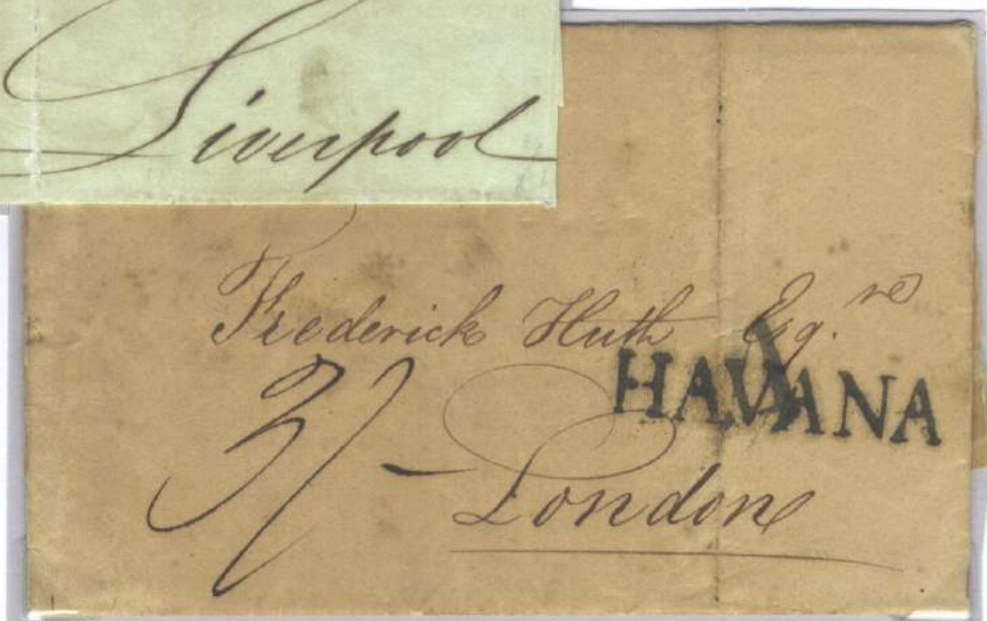 Liverpool
Frederick Huth Esq.re
HAVANA
3/-
London